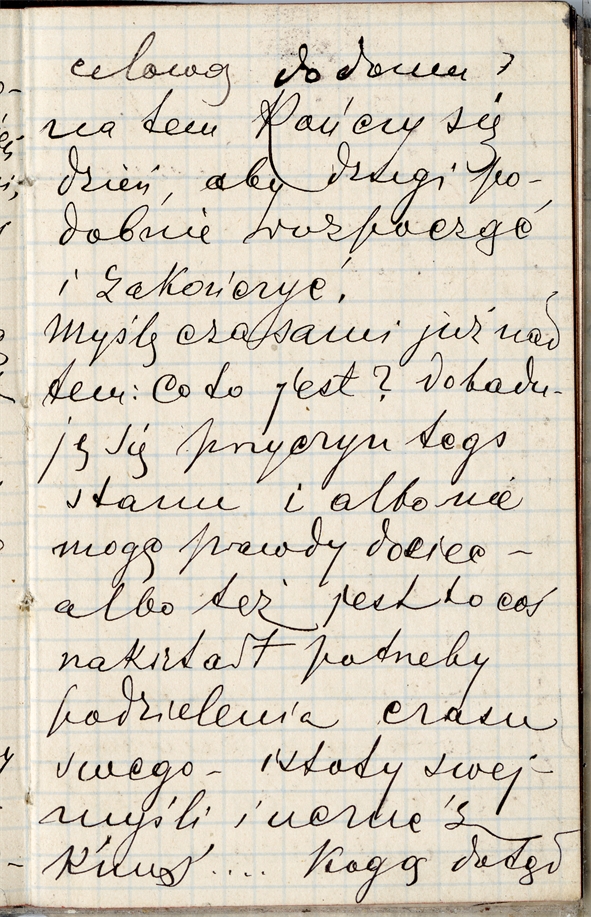 celową do domu?
na tem kończy się
dzień, aby drugi po-
dobnie rozpocząć
i zakończyć.
Myślę czasami już nad
tem: Co to jest? Dobadu-
ję się przyczyn tego
stanu i albo nie
mogę prawdy dociec –
albo też jest to coś
nakształt potrzeby
podzielenia czasu
swego – istoty swej
myśli i uczuć z
kimś.... Kogo dotąd